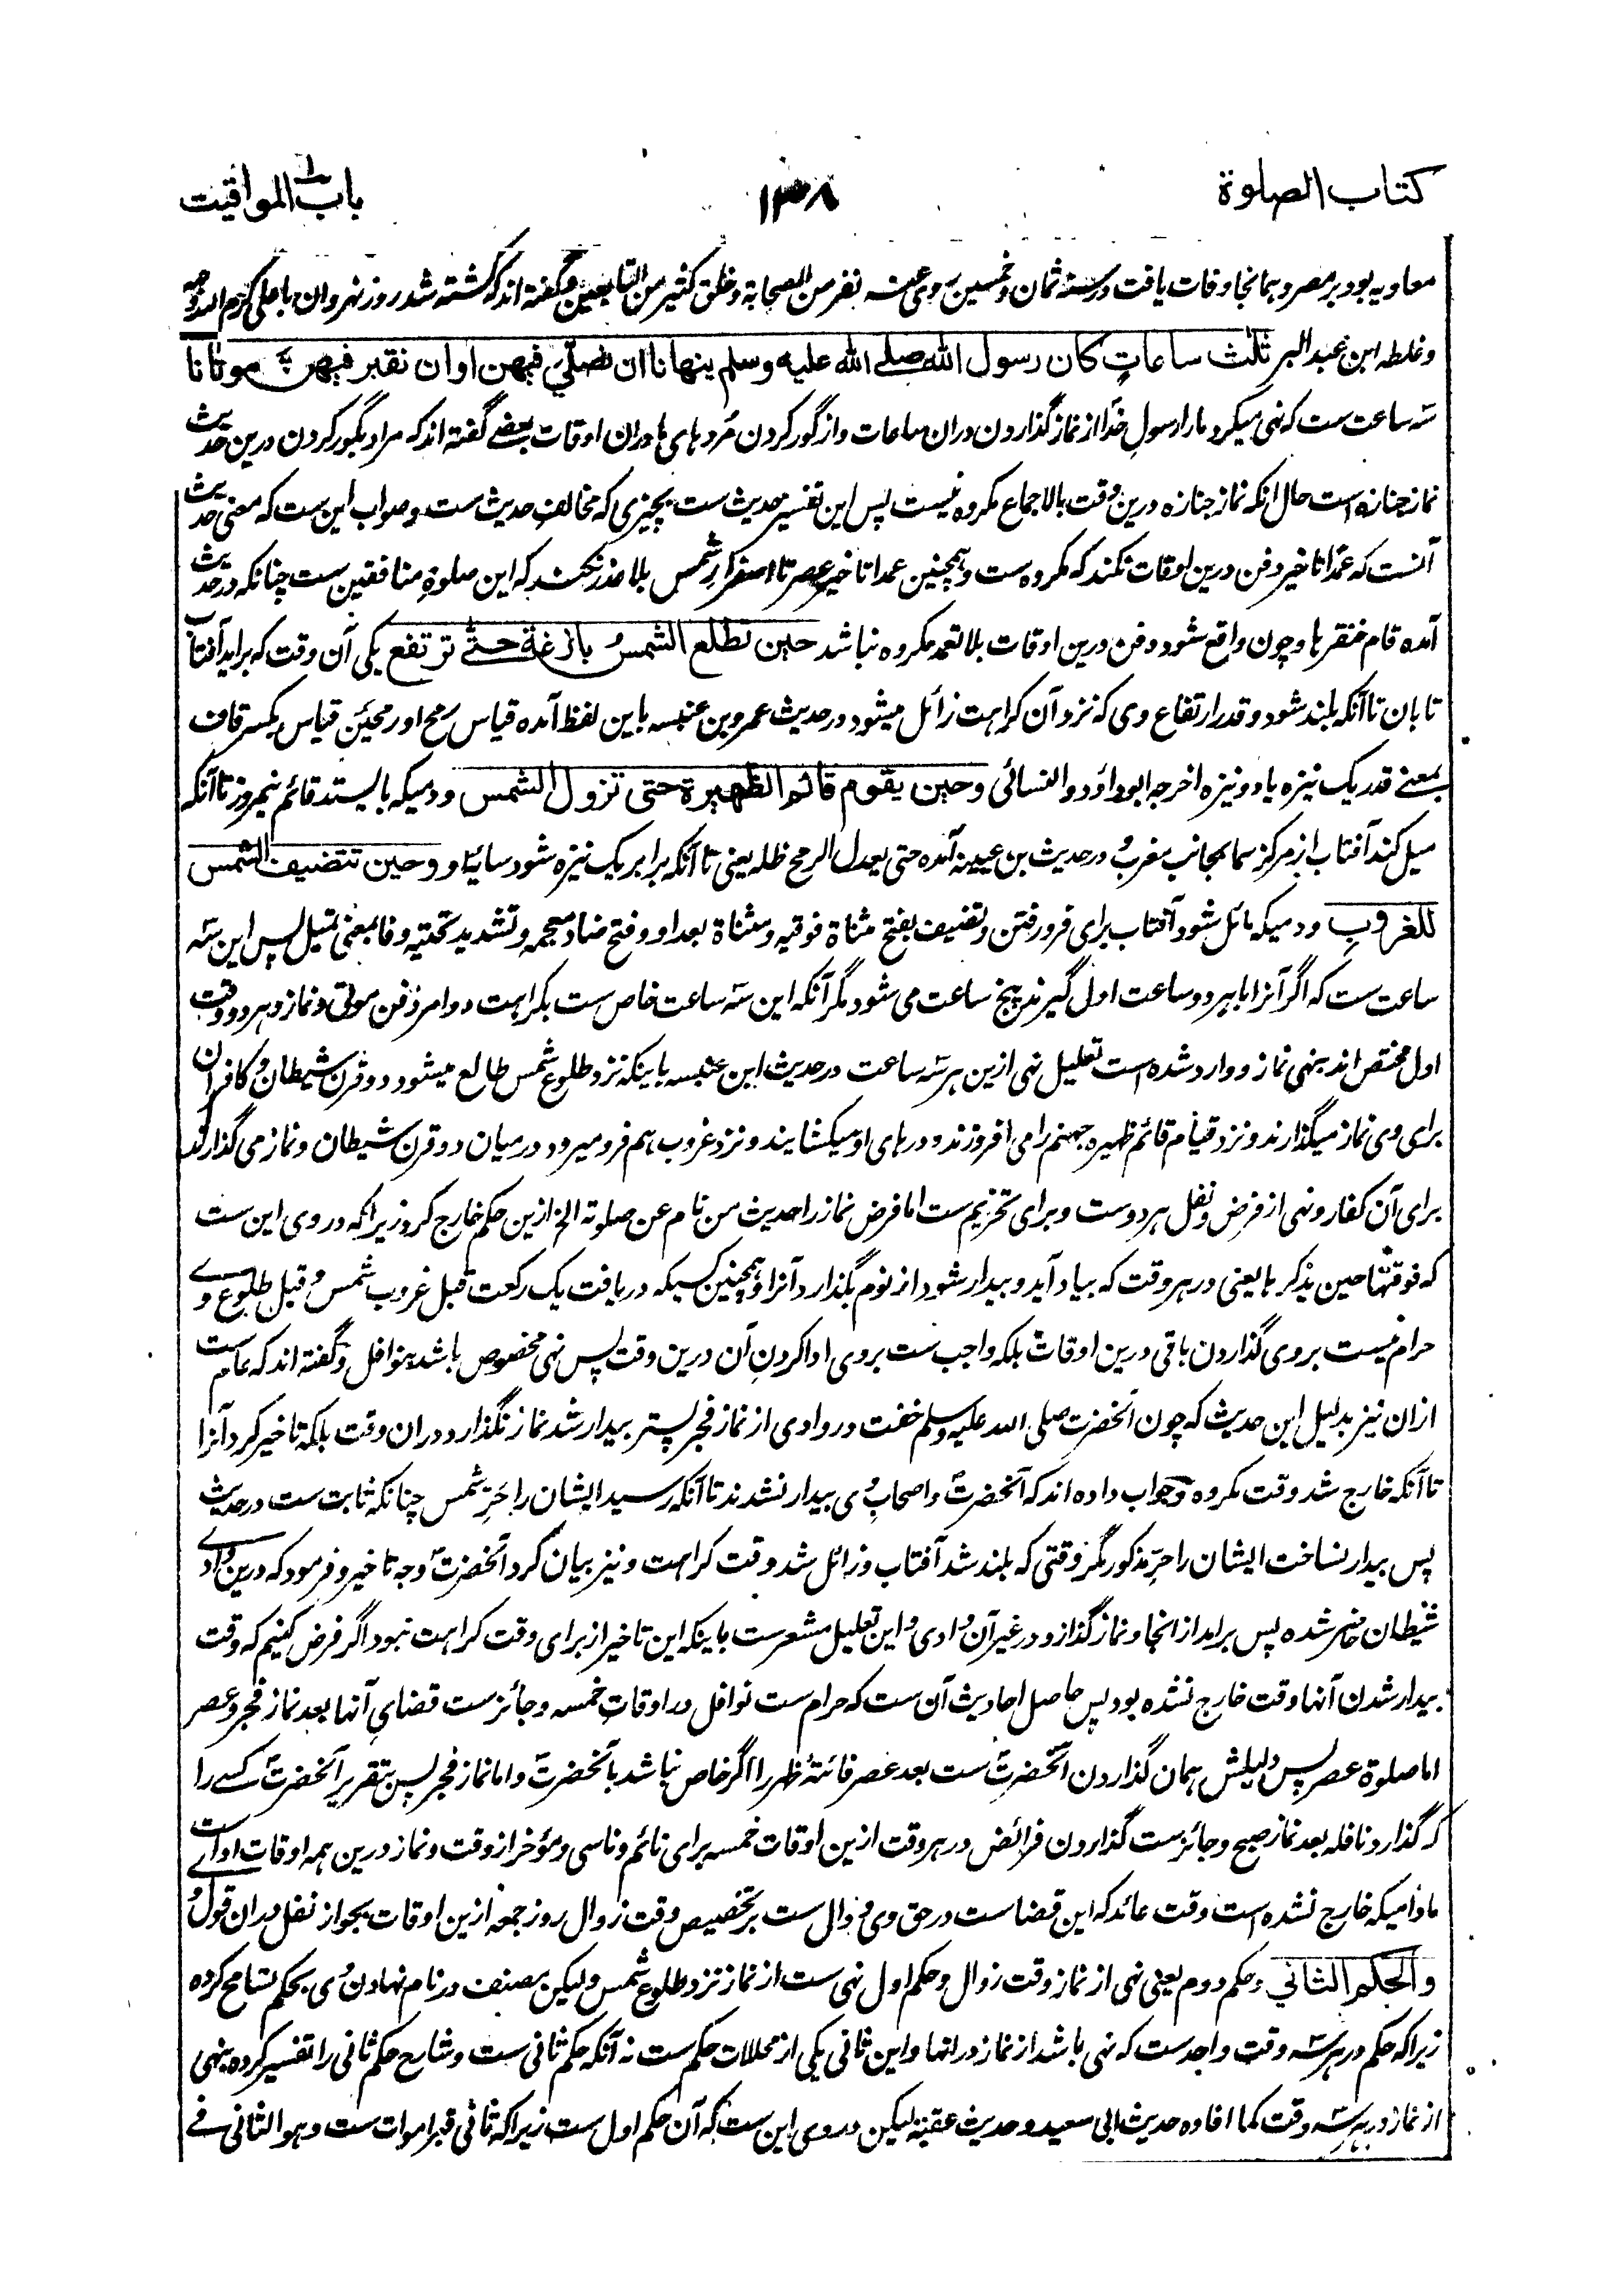 کتاب الصلوة
۱۳۸
باب المواقیت
معاویه بود بر مصر و بهمانجا وفات یافت در سنه ثمان و خمسین روی عنه نفر من الصحابة و خلق کثیر من التابعین و گفته اند که کشته شد روز نهروان با علی کرم الله وجهه
و غلطه ابن عبد البر ثلث ساعات کان رسول الله صلے الله علیه وسلم ینهانا ان نصلّی فیهن او ان نقبر فیهن موتانا
سه ساعت ست که نهی میکرد ما را رسول خدا از نماز گذاردن دران ساعات و از گور کردن مرد های ما دران اوقات بعضے گفته اند که مراد بگور کردن درین حدیث
نماز جنازه است حال انکه نماز جنازه درین وقت بالاجماع مکروه نیست پس این تفسیر حدیث ست بچیزی که مخالف حدیث ست و صواب این ست که معنی حدیث
آنست که عمدا تاخیر دفن درین اوقات نکنند که مکروه ست و همچنین عمدا تاخیر عصر تا اصفرار شمس بلا عذر نکنند که این صلوة منافقین ست چنانکه در حدیث
آمده قام فنقرها و چون واقع شود دفن درین اوقات بلا تعمد مکروه نباشد حین تطلع الشمس بازغة حتّٰی ترتفع یکی آن وقت که براید آفتاب
تابان تا آنکه بلند شود و قدر ارتفاع وی که نزد آن کراهت زائل میشود در حدیث عمرو بن عنبسه باین لفظ آمده قیاس رمح او رمحین قیاس بکسر قاف
بمعنے قدر یک نیزه یا دو نیزه اخرجه ابو داؤد و النسائی و حین یقوم قائم الظهیرة حتی تزول الشمس و دمیکه بایستد قائم نیمروز تا آنکه
میل کند آفتاب از مرکز سما بجانب مغرب و در حدیث بن عیینه آمده حتی یعدل الرمح ظله یعنی تا آنکه برابر یک نیزه شود سایۀ او و حین تتضیف الشمس
للغروب و دمیکه مائل شود آفتاب برای فرو رفتن و تضیف بفتح مثناة فوقیه و مثناة بعد او و فتح ضاد معجمه و تشدید تحتیه و فا بمعنی تمیل پس این سه
ساعت ست که اگر آنرا با هر دو ساعت اول گیرند پنج ساعت می شود مگر آنکه این سه ساعت خاص ست بکراهت دو امر دفن موتی و نماز و هر دو وقت
اول مختص اند بنهی نماز و وارد شده است تعلیل نهی ازین هر سه ساعت در حدیث ابن عنبسه باینکه نزد طلوع شمس طالع میشود دو قرن شیطان و کافران
برای وی نماز میگذارند و نزد قیام قائم ظهیره جهنم را می افروزند و در های او میکشایند و نزد غروب هم فرو میرود در میان دو قرن شیطان و نماز می گذارند
برای آن کفار و نهی از فرض و نفل هر دوست و برای تحریم ست اما فرض نماز را حدیث من نام عن صلوته الخ ازین حکم خارج کرد زیراکه در وی این ست
که فوقتها حین یذکرها یعنی در هر وقت که بیاد آید و بیدار شود از نوم بگذارد آنرا و همچنین کسیکه دریافت یک رکعت قبل غروب شمس و قبل طلوع وے
حرام نیست بر وی گذاردن باقی درین اوقات بلکه واجب ست بر وی ادا کردن آن درین وقت پس نهی مخصوص باشد بنوافل و گفته اند که عام ست
ازان نیز بدلیل این حدیث که چون آنحضرت صلی الله علیه وسلم خفت در وادی از نماز فجر پستر بیدار شد نماز نگذارد دران وقت بلکه تاخیر کرد آنرا
تا آنکه خارج شد وقت مکروه و جواب داده اند که آنحضرت و اصحاب وی بیدار نشدند تا آنکه رسید ایشان را حَرّ شمس چنانکه ثابت ست در حدیث
پس بیدار نساخت ایشان را حرّ مذکور مگر وقتی که بلند شد آفتاب و زائل شد وقت کراهت و نیز بیان کرد آنحضرت وجه تاخیر و فرمود که درین وادے
شیطان حاضر شده پس براید از انجا و نماز گذارد در غیر آن وادی و این تعلیل مشعرست باینکه این تاخیر از برای وقت کراهت نبود اگر فرض کنیم که وقت
بیدار شدن آنها وقت خارج نشده بود پس حاصل احادیث آن ست که حرام ست نوافل در اوقات خمسه و جائزست قضای آنها بعد نماز فجر و عصر
اما صلوة عصر پس دلیلش همان گذاردن آنحضرت ست بعد عصر فائتۀ ظهر را اگر خاص نباشد بآنحضرت و اما نماز فجر پس بتقریر آنحضرت کسے را
که گذارد نافله بعد نماز صبح و جائزست گذاردن فرائض در هر وقت ازین اوقات خمسه برای نائم و ناسی و مؤخر از وقت و نماز درین همه اوقات اداے ست
مادامیکه خارج نشده است وقت عائد که این قضاست در حق وی و دال ست بر تخصیص وقت زوال روز جمعه ازین اوقات بجواز نفل دران قول و
والحکم الثانی و حکم دوم یعنی نهی از نماز وقت زوال و حکم اول نهی ست از نماز نزد طلوع شمس ولیکن مصنف در نام نهادن وی بحکم تسامح کرده
زیراکه حکم در هر سه وقت واحد ست که نهی باشد از نماز در انها و این ثانی یکی از محلات حکم ست نه آنکه حکم ثانی ست و شارح حکم ثانی را تفسیر کرده بنهی
از نماز در هر سه وقت کما افاده حدیث ابی سعید و حدیث عقبة لیکن در وی این ست که آن حکم اول ست زیراکه ثانی قبر اموات ست و هو الثانی فے